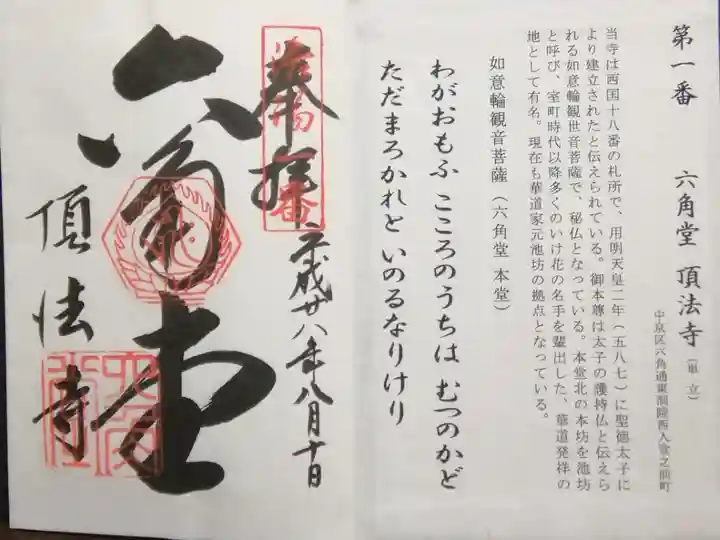 第一番 六角堂 頂法寺（単立）
中京区六角通東洞院西入堂之前町
当寺は西国十八番の札所で、用明天皇二年（五八七）に聖徳太子に
より建立されたと伝えられている。御本尊は太子の護持仏と伝えら
れる如意輪観世音菩薩で、秘仏となっている。本堂北の本坊を池坊
と呼び、室町時代以降多くのいけ花の名手を輩出した、華道発祥の
地として有名。現在も華道家元池坊の拠点となっている。
如意輪観音菩薩（六角堂 本堂）
わがおもふ こころのうちは むつのかど
ただまろかれと いのるなりけり
奉拝
平成廿八年八月十日
六角堂
頂法寺